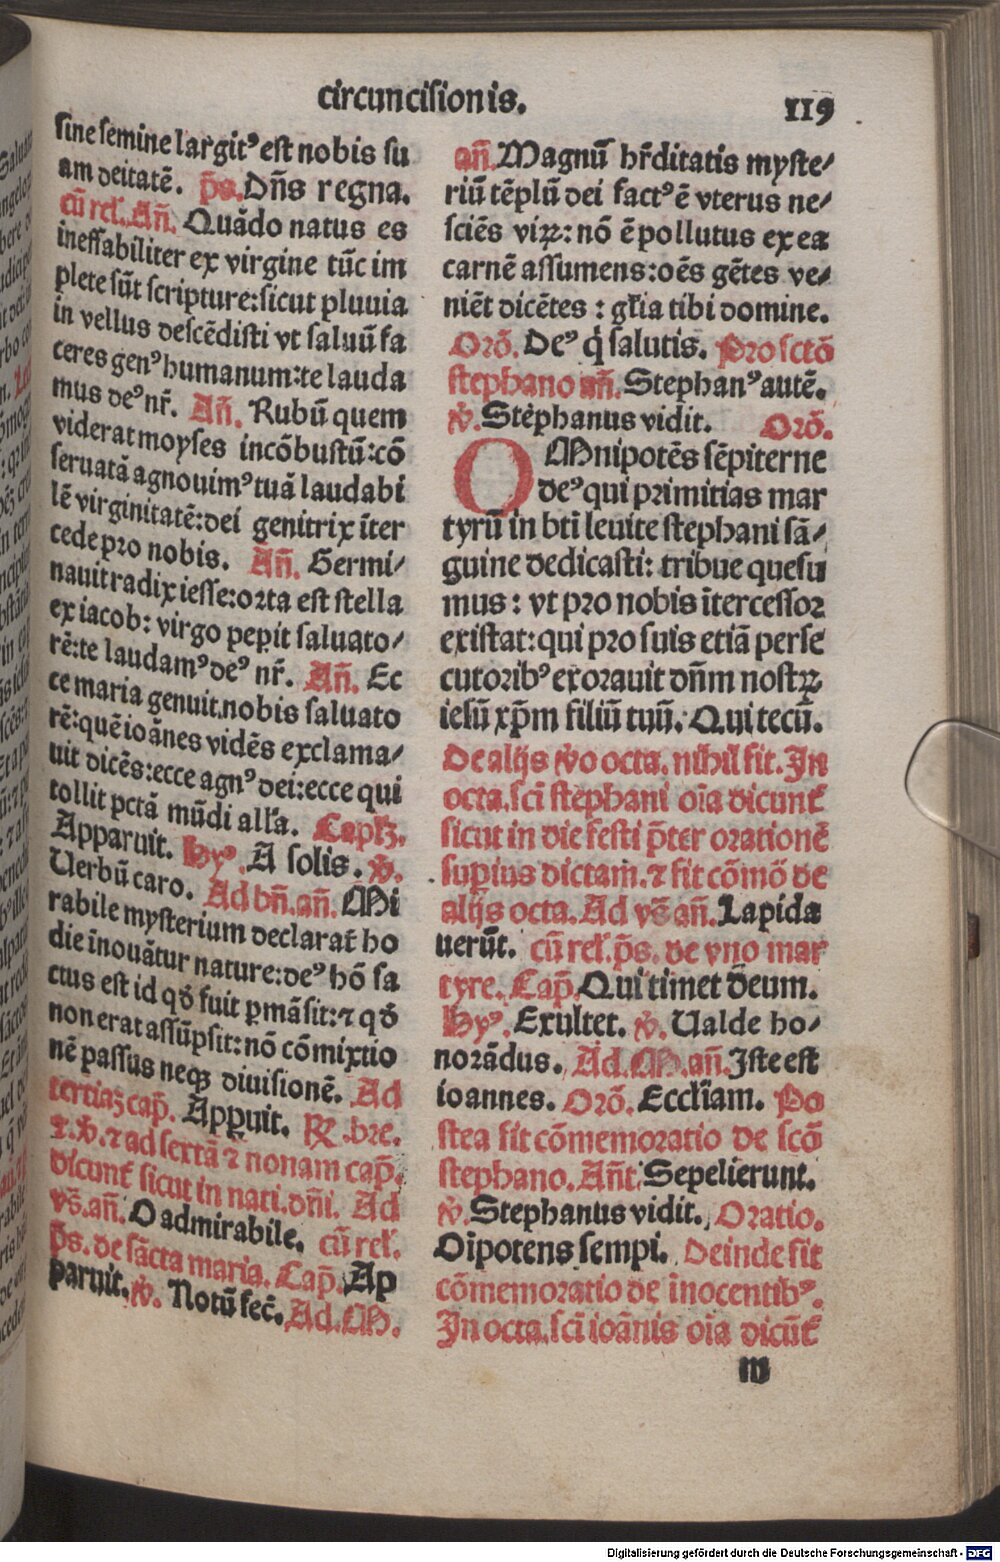 circuncisionis.
119
sine semine largitꝰ est nobis su
am deitatē. p̄s. Dn̄s regna.
cū rel'. Añ. Quādo natus es
ineffabiliter ex virgine tūc im
plete sūt scripture: sicut pluuia
in vellus descēdisti vt saluū fa
ceres genꝰ humanum: te lauda
mus deꝰ nr̄. Añ. Rubū quem
viderat moyses incōbustū: cō
seruatā agnouimꝰ tuā laudabi
lē virginitatē: dei genitrix īter
cede pro nobis. Añ. Germi/
nauit radix iesse: orta est stella
ex iacob: virgo peꝑit saluato/
rē: te laudamꝰ deꝰ nr̄. Añ. Ec
ce maria genuit nobis saluato
rē: quē ioānes vidēs exclama/
uit dicēs: ecce agnꝰ dei: ecce qui
tollit pctā mūdi alľa. Capľꝫ.
Apparuit. Hyꝰ. A solis. ꝟ.
Uerbū caro. Ad bn̄. añ. Mi
rabile mysterium declarat̄ ho
die īnouātur nature: deꝰ hō fa
ctus est id qđ fuit ꝑmāsit: ⁊ qđ
non erat assūpsit: nō cōmixtio
nē passus neqꝫ diuisionē. Ad
tertiaꝫ cap̄. Apꝑuit. ℞. bre.
⁊. ꝟ. ⁊ ad sextā ⁊ nonam cap̄.
dicunt̄ sicut in nati. dn̄i. Ad
vs̄. añ. O admirabile. cū rel'.
p̄s. de sācta maria. Cap̄. Ap
paruit. ꝟ. Notū fec̄. Ad. M.
añ. Magnū hr̄ditatis myste/
riū tēplū dei factꝰ ē vterus ne/
sciēs viꝝ: nō ē pollutus ex ea
carnē assumens: oēs gētes ve/
niēt dicētes : gľia tibi domine.
Orō. Deꝰ q̇ salutis. Pro sctō
stephano añ. Stephanꝰ autē.
ꝟ. Stephanus vidit. Orō.
OMnipotēs sēpiterne
deꝰ qui primitias mar
tyrū in bti leuite stephani sā/
guine dedicasti: tribue quesu
mus : vt pro nobis ītercessor
existat: qui pro suis etiā perse
cutoribꝰ exorauit dn̄m nostꝝ
iesū xp̄m filiū tuū. Qui tecū.
De alijs ꝟo octa. nihil fit. In
octa. sci stephani oīa dicunt̄
sicut in die festi p̄ter orationē
suꝑius dictam. ⁊ fit cōmō de
alijs octa. Ad vs̄ añ. Lapida
uerūt. cū rel'. p̄s. de vno mar
tyre. Cap̄. Qui timet deum.
Hyꝰ. Exultet. ꝟ. Ualde ho/
norādus. Ad. M. añ. Iste est
ioannes. Orō. Eccľiam. Po
stea fit cōmemoratio de scō
stephano. Añt. Sepelierunt.
ꝟ. Stephanus vidit. Oratio.
Oīpotens sempi. Deinde fit
cōmemoratio de inocentibꝰ.
In octa. sci ioānis oīa dicūt̄
Digitalisierung gefördert durch die Deutsche Forschungsgemeinschaft - DFG